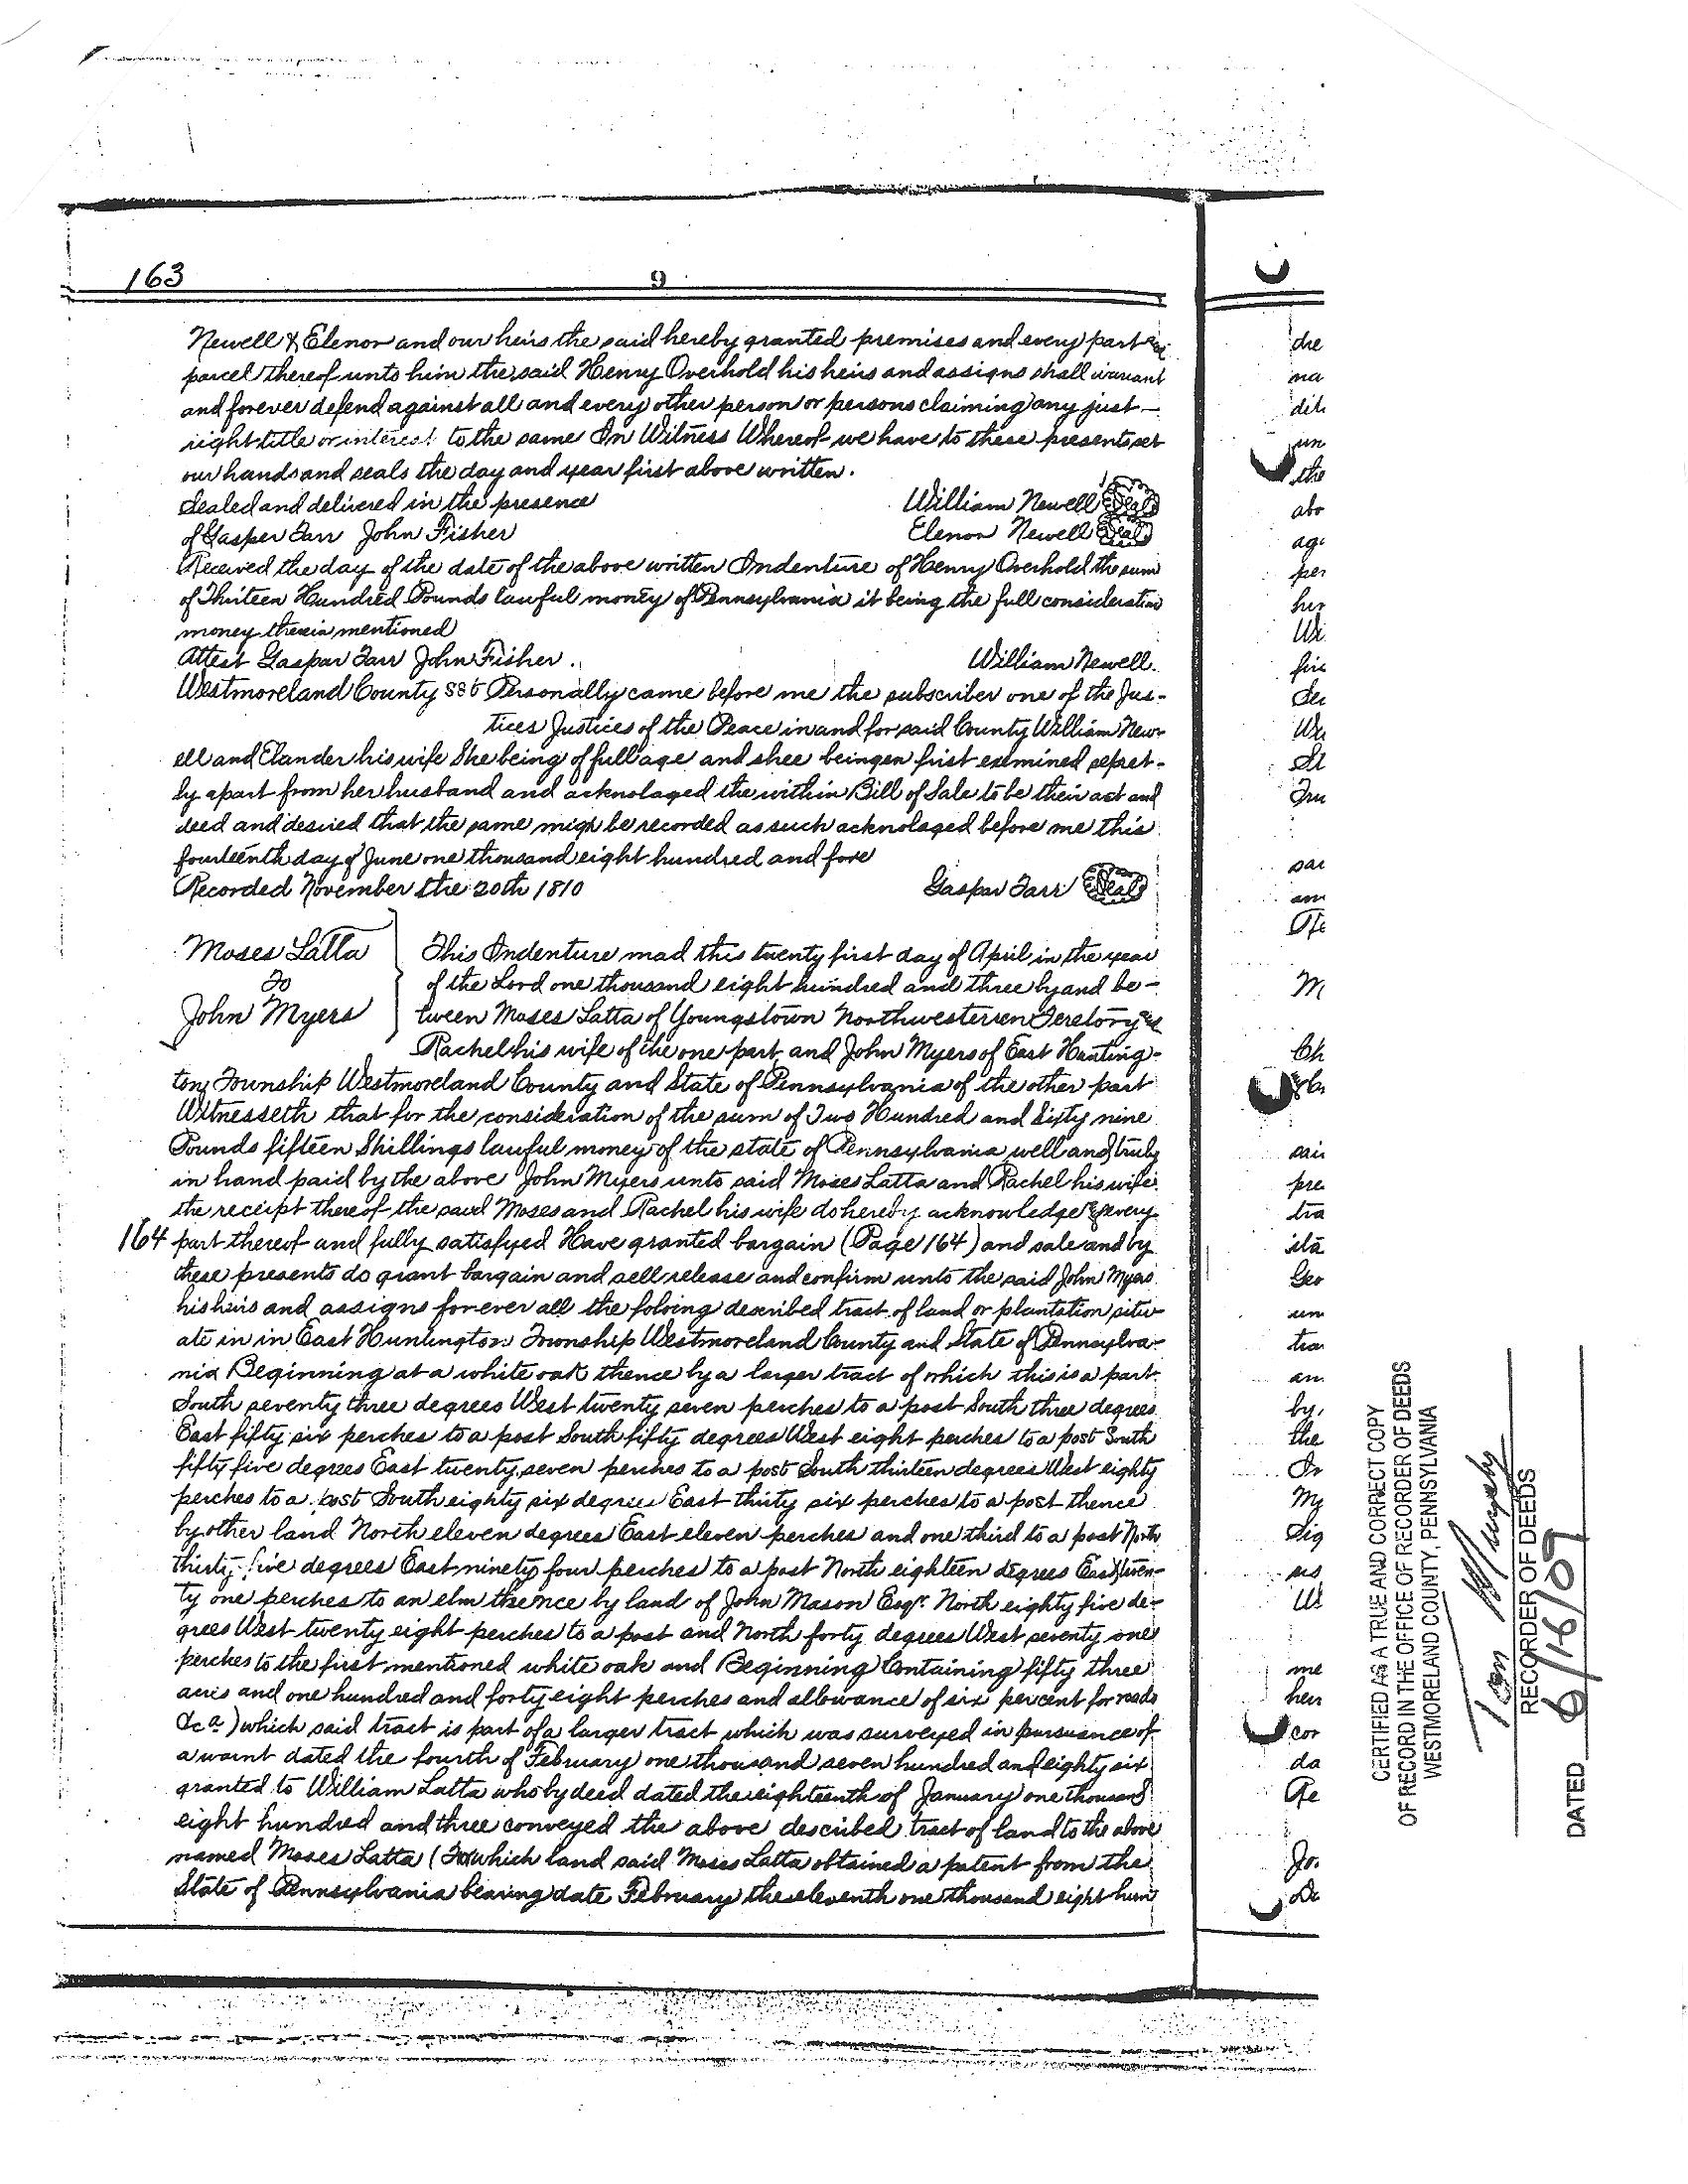 163
9
Newell & Elenor and our heirs the said hereby granted premises and every part
parcel thereof unto him the said Henry Overhold his heirs and assigns shall warrant
and forever defend against all and every other person or persons claiming any just—
right title or interest to the same In Witness Whereof we have to these presents set
our hands and seals the day and year first above written.
Sealed and delivered in the presence William Newell Seal
of Gasper Tarr John Fisher Elenor Newell Seal
Received the day of the date of the above written Indenture of Henry Overhold the sum
of Thirteen Hundred Pounds lawful money of Pennsylvania it being the full consideration
money therein mentioned
Attest Gaspar Tarr John Fisher. William Newell.
Westmoreland County SSt Personally came before me the subscriber one of the Jus-
tices Justices of the Peace in and for said County William New-
ell and Elander his wife She being of full age and shee beingen first examined sepret-
ly apart from her husband and acknolaged the within Bill of Sale to be their act and
deed and desired that the same migh be recorded as such acknolaged before me this
fourteenth day of June one thousand eight hundred and fore
Recorded November the 20th 1810 Gaspar Tarr Seal
Moses Latta
To
John Myers
This Indenture mad this twenty first day of April in the year
of the Lord one thousand eight hundred and three by and be-
tween Moses Latta of Youngstown Northwesterren Teretory &
Rachel his wife of the one part and John Myers of East Hunting-
ton Township Westmoreland County and State of Pennsylvania of the other part
Witnesseth that for the consideration of the sum of Two Hundred and Sixty nine
Pounds fifteen Shillings lawful money of the state of Pennsylvania well and truly
in hand paid by the above John Myers unto said Moses Latta and Rachel his wife
the receipt thereof the said Moses and Rachel his wife do hereby acknowledge & every
164 part thereof and fully satisfyed Have granted bargain (Page 164) and sale and by
these presents do grant bargain and sell release and confirm unto the said John Myers
his heirs and assigns forever all the folving described tract of land or plantation situ-
ate in in East Huntington Township Westmoreland County and State of Pennsylva-
nia Beginning at a white oak thence by a larger tract of which this is a part
South seventy three degrees West twenty seven perches to a post South three degrees
East fifty six perches to a post South fifty degrees West eight perches to a post South
fifty five degrees East twenty seven perches to a post South thirteen degrees West eighty
perches to a post South eighty six degrees East thirty six perches to a post thence
by other land North eleven degrees East eleven perches and one third to a post North
thirty five degrees East ninety four perches to a post North eighteen degrees East twen-
ty one perches to an elm thence by land of John Mason Esqr. North eighty five de-
grees West twenty eight perches to a post and North forty degrees West seventy one
perches to the first mentioned white oak and Beginning Containing fifty three
acris and one hundred and forty eight perches and allowance of six percent for roads
&c a.) which said tract is part of a larger tract which was surveyed in pursuance of
a warnt dated the fourth of February one thousand seven hundred and eighty six
granted to William Latta who by deed dated the eighteenth of January one thousand
eight hundred and three conveyed the above described tract of land to the above
named Moses Latta (For which land said Moses Latta obtained a patent from the
State of Pennsylvania bearing date February the eleventh one thousand eight hun
CERTIFIED AS A TRUE AND CORRECT COPY
OF RECORD IN THE OFFICE OF RECORDER OF DEEDS
WESTMORELAND COUNTY, PENNSYLVANIA
Tom Murphy
RECORDER OF DEEDS
DATED 6/16/09